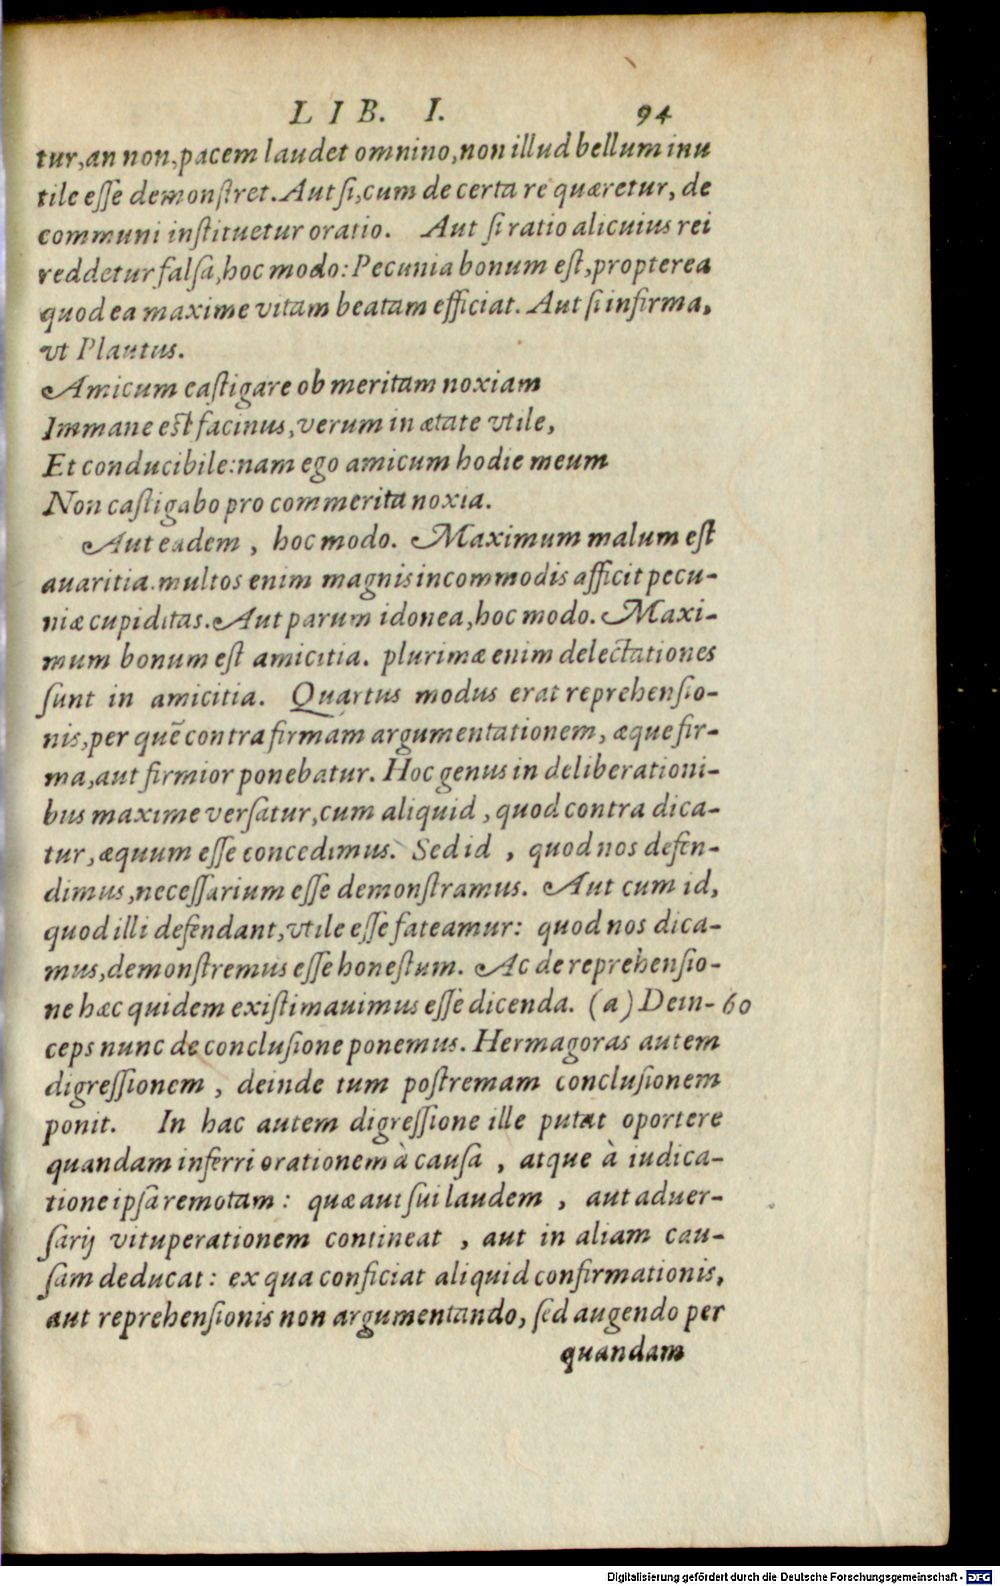 LIB. I. 94
tur, an non, pacem laudet omnino, non illud bellum inu
tile eſſe demonſtret. Aut ſi, cum de certa re quæretur, de
communi inſtituetur oratio. Aut ſi ratio alicuius rei
reddetur falſa, hoc modo: Pecunia bonum eſt, propterea
quod ea maxime vitam beatam efficiat. Aut ſi infirma,
vt Plautus.
Amicum caſtigare ob meritam noxiam
Immane eſt facinus, verum in ætate vtile,
Et conducibile: nam ego amicum hodie meum
Non caſtigabo pro commerita noxia.
Aut eadem, hoc modo. Maximum malum eſt
auaritia. multos enim magnis incommodis afficit pecu-
niæ cupiditas. Aut parum idonea, hoc modo. Maxi-
mum bonum eſt amicitia. plurimæ enim delectationes
ſunt in amicitia. Quartus modus erat reprehenſio-
nis, per quē contra firmam argumentationem, æque fir-
ma, aut firmior ponebatur. Hoc genus in deliberationi-
bus maxime verſatur, cum aliquid, quod contra dica-
tur, æquum eſſe concedimus. Sed id, quod nos defen-
dimus, neceſſarium eſſe demonſtramus. Aut cum id,
quod illi defendant, vtile eſſe fateamur: quod nos dica-
mus, demonſtremus eſſe honeſtum. Ac de reprehenſio-
ne hæc quidem exiſtimauimus eſſe dicenda. (a) Dein- 60
ceps nunc de concluſione ponemus. Hermagoras autem
digreſſionem, deinde tum poſtremam concluſionem
ponit. In hac autem digreſſione ille putat oportere
quandam inferri orationem à cauſa, atque à iudica-
tione ipſa remotam: quæ aut ſui laudem, aut aduer-
ſarij vituperationem contineat, aut in aliam cau-
ſam deducat: ex qua conficiat aliquid confirmationis,
aut reprehenſionis non argumentando, ſed augendo per
quandam
Digitalisierung gefördert durch die Deutsche Forschungsgemeinschaft - DFG